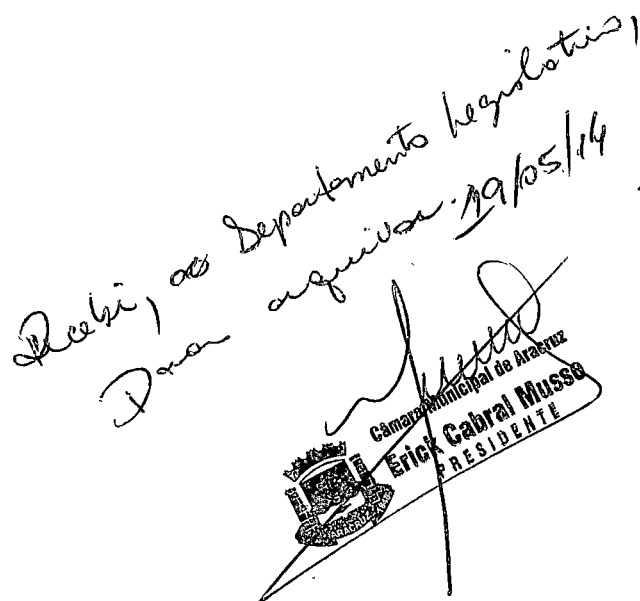 Recebi, ao Departamento Legislativo,
Para arquivar. 19/05/14
Câmara Municipal de Aracruz
Erick Cabral Musso
PRESIDENTE
ARACRUZ